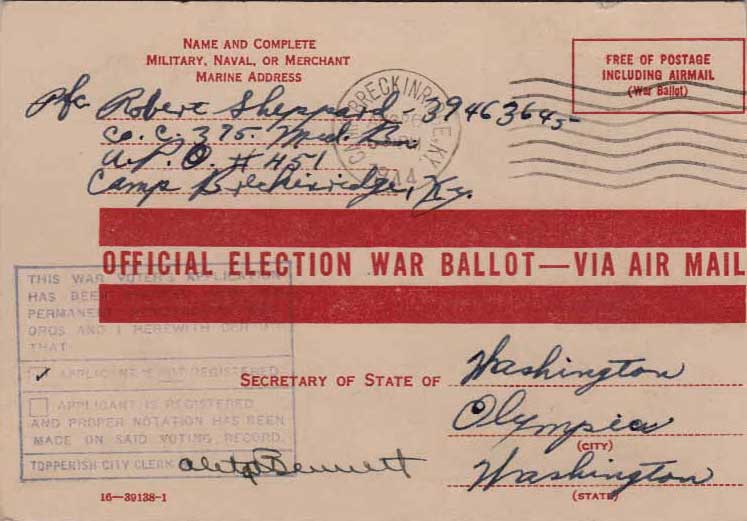 NAME AND COMPLETE
MILITARY, NAVAL, OR MERCHANT
MARINE ADDRESS
FREE OF POSTAGE
INCLUDING AIRMAIL
(War Ballot)
Pfc. Robert Sheppard 39463645
Co. C. 375. Med. Bn
A.P.O. #451
Camp Breckinridge, Ky.
BRECKINRIDGE, KY.
1944
OFFICIAL ELECTION WAR BALLOT—VIA AIR MAIL
THIS WAR VOTER'S APPLICATION
HAS BEEN
PERMANENT
ORDS AND I HEREWITH CERTIFY
THAT
✓ APPLICANT IS NOT REGISTERED
APPLICANT IS REGISTERED
AND PROPER NOTATION HAS BEEN
MADE ON SAID VOTING RECORD.
TOPPENISH CITY CLERK Bennett
SECRETARY OF STATE OF Washington
Olympia
(CITY)
Washington
(STATE)
16—39138-1